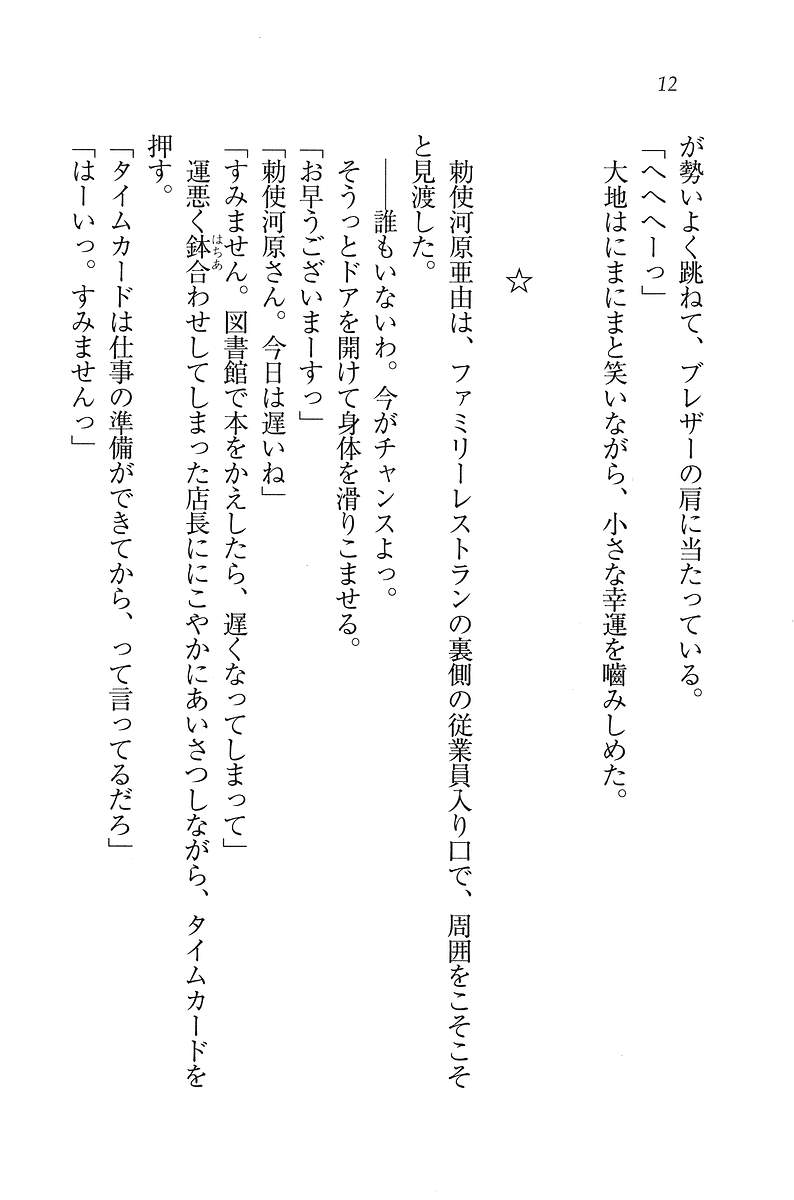 12
が勢いよく跳ねて、ブレザーの肩に当たっている。
「へへへーっ」
大地はにまにまと笑いながら、小さな幸運を嚙みしめた。
☆
勅使河原亜由は、ファミリーレストランの裏側の従業員入り口で、周囲をこそこそ
と見渡した。
――誰もいないわ。今がチャンスよっ。
そうっとドアを開けて身体を滑りこませる。
「お早うございまーすっ」
「勅使河原さん。今日は遅いね」
「すみません。図書館で本をかえしたら、遅くなってしまって」
運悪く鉢合わせしてしまった店長ににこやかにあいさつしながら、タイムカードを
はちあ
押す。
「タイムカードは仕事の準備ができてから、って言ってるだろ」
「はーいっ。すみませんっ」